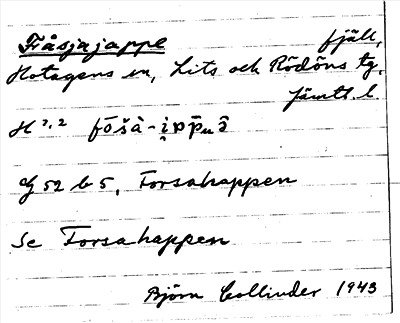 Fråsjajappe fjäll,
Hotagens sn, Lits och Rödöns tg.
Jämtl. l.
H 7,2 fōšà-i̯ɒp̄ᵤə̑
Gg 52 b 5, Forsahappen
Se Forsahappen
Björn Collinder 1943